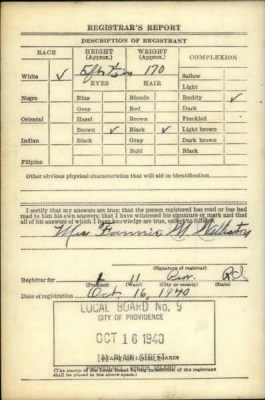 REGISTRAR'S REPORT
DESCRIPTION OF REGISTRANT
RACE HEIGHT (Approx.) WEIGHT (Approx.) COMPLEXION
White ✓ 5 ft 170 Sallow
EYES HAIR Light
Negro Blue Blonde Ruddy ✓
Gray Red Dark
Oriental Hazel Brown Freckled
Brown ✓ Black ✓ Light brown
Indian Black Gray Dark brown
Bald Black
Filipino
Other obvious physical characteristics that will aid in identification
I certify that my answers are true; that the person registered has read or has had
read to him his own answers; that I have witnessed his signature or mark and that
all of his answers of which I have knowledge are true, except as follows:
Miss Fannie M.
(Signature of registrar)
Registrar for 11 Prov. R I
(Precinct) (Ward) (City or county) (State)
Date of registration Oct. 16, 1940
LOCAL BOARD No. 9
CITY OF PROVIDENCE
OCT 16 1940
PLAIN STREET
(The stamp of the Local Board having jurisdiction of the registrant
shall be placed in the above space.)